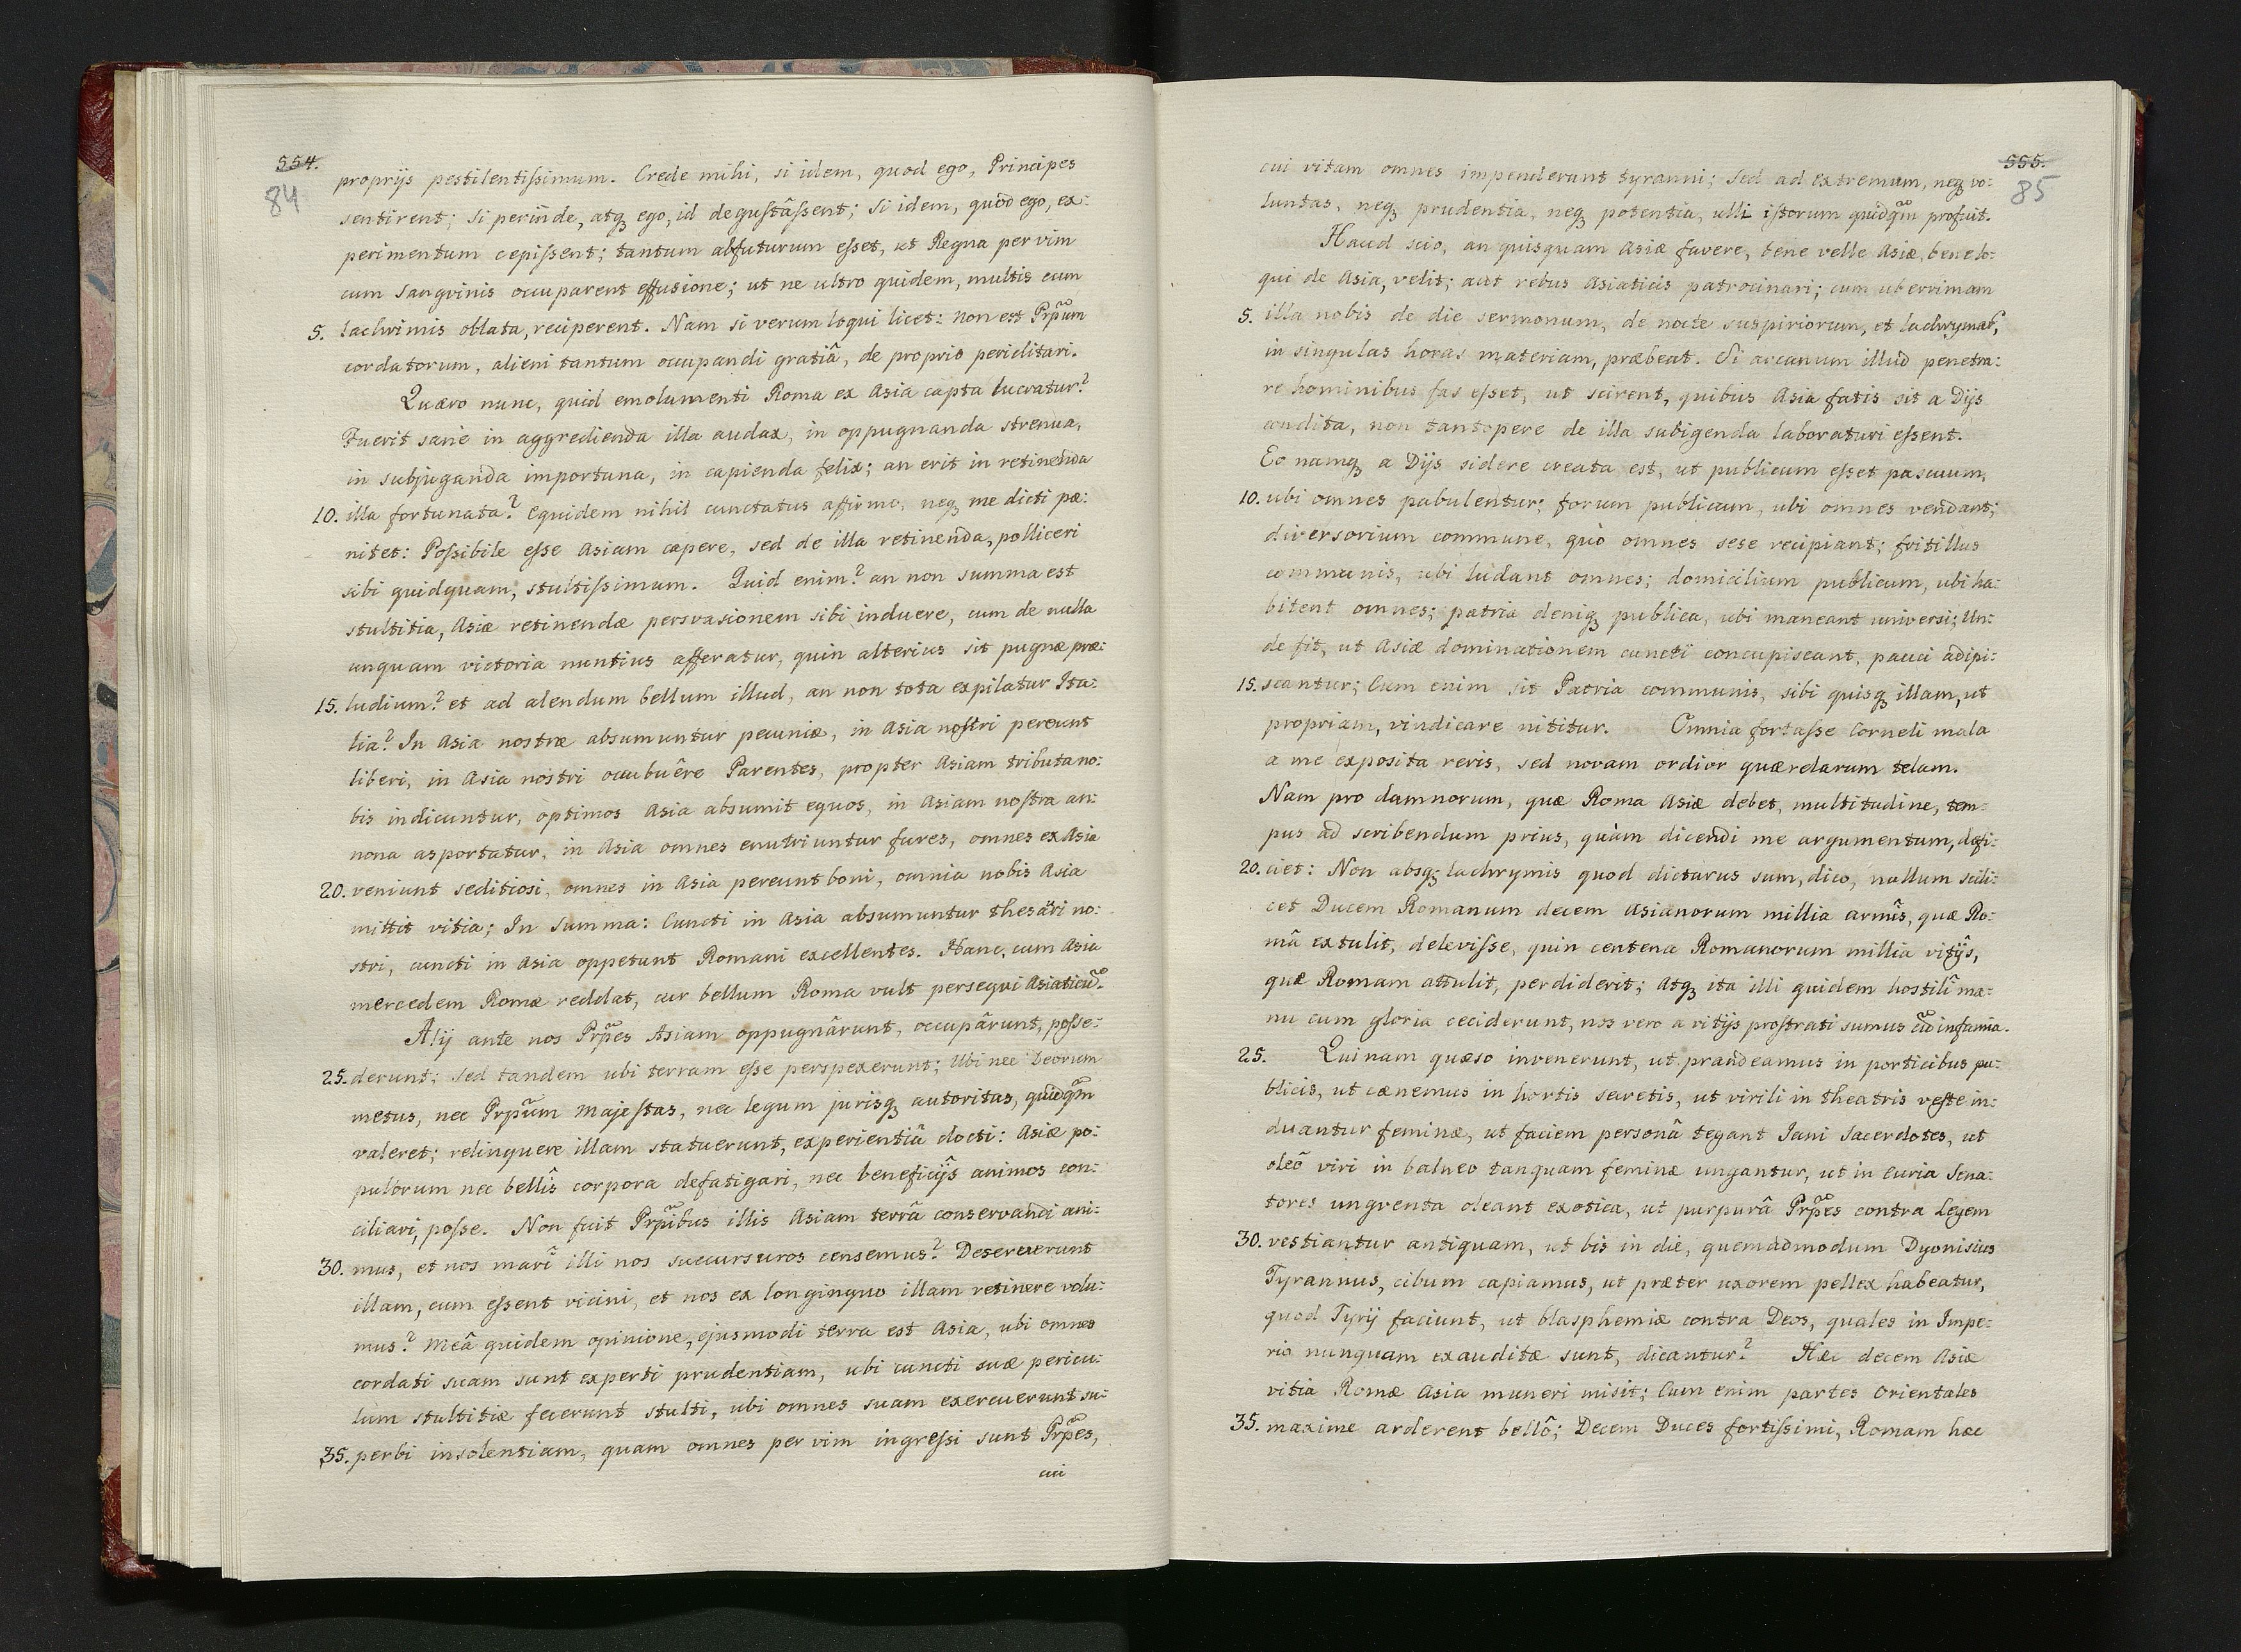 554.
84
proprijs pestilentiſsimum. Crede mihi, si idem, quod ego, Principes
sentirent; si perinde, atq ego, id deguſtâſsent; si idem, quod ego, ex:
perimentum cepiſsent; tantum abfuturum eſset, ut Regna per vim
cum sangvinis occuparent effusione; ut ne ultro quidem, multis cum
5. lachrimis oblata, reciperent. Nam si verum loqui licet: non est Prpum
cordatorum, alieni tantum occupandi gratiâ, de proprio periclitari.
Quæro nunc, quid emolumenti Roma ex Asia capta lucratur?
Fuerit sane in aggredienda illa audax, in oppugnanda strenua,
in subjuganda importuna, in capienda felix; an erit in retinenda
10. illa fortunata? equidem nihil cunctatus affirmo, neq me dicti pæ:
nitet: Poſsibile eſse Asiam capere, sed de illa retinenda, polliceri
sibi quidquam, stultiſsimum. Quid enim? an non summa est
stultitia, Asiæ retinendæ persvasionem sibi induere, cum de nulla
unquam victoria nuntius afferatur, quin alterius sit pugnæ præ:
15. ludium? et ad alendum bellum illud, an non tota expilatur Ita:
lia? In Asia nostræ absumuntur pecuniæ, in Asia noſtri pereunt
liberi, in Asia nostri occubuêre Parentes, propter Asiam tributa no:
bis indicuntur, optimos Asia absumit equos, in Asiam noſtra an:
nona asportatur, in Asia omnes enutriuntur fures, omnes ex Asia
20. veniunt seditiosi, omnes in Asia pereunt boni, omnia nobis Asia
mittit vitia; In Summa: Cuncti in Asia absumuntur thesäri no:
stri, cuncti in Asia oppetunt Romani excellentes. Hanc, cum Asia
mercedem Romæ reddat, cur bellum Roma vult persequi Asiaticũ.
Alij ante nos Prpes Asiam oppugnârunt, occupârunt, poſse:
25. derunt; sed tandem ubi terram eſse perspexerunt; Ubi nec Deorum
metus, nec Prpum Majeſtas, nec legum jurisq autoritas, quidqm
valeret; relinquere illam statuerunt, experientiâ docti: Asiæ po:
pulorum nec bellîs corpora defatigari, nec beneficijs animos con:
ciliari, poſse. Non fuit Prpibus illis Asiam terrâ conservandi ani:
30. mus, et nos marî illi nos succursuros censemus? Deseruerunt
illam, cum eſsent vicini, et nos ex longinquo illam retinere volu:
mus? meâ quidem opinione, ejusmodi terra est Asia, ubi omnes
cordati suam sunt experti prudentiam, ubi cuncti suæ pericu:
lum stultitiæ fecerunt stulti, ubi omnes suam exercuerunt su:
35. perbi insolentiam, quam omnes per vim ingreſsi sunt Prpes,
cui
555.
85
cui vitam omnes impenderunt tyranni; sed ad extremum, neq vo:
luntas, neq prudentia, neq potentia, ulli iſtorum quidqm profuit.
Haud scio, an quisquam Asiæ favere, bene velle Asiæ, bene lo:
qui de Asia, velit; aut rebus Asiaticis patrocinari; cum uberrimam
5. illa nobis de die sermonum, de nocte suspiriorum, et lachrymar,
in singulas horas materiam, præbeat. Si arcanum illud penetra:
re hominibus fas eſset, ut scirent, quibus Asia fatis sit a Dijs
condita, non tantopere de illa subigenda laboraturi eſsent.
Eo namq a Dijs sidere creata est, ut publicum eſset pascuum,
10. ubi omnes pabulentur; forum publicum, ubi omnes vendant;
diversorium commune, quò omnes sese recipiant; fritillus
communis, ubi ludant omnes; domicilium publicum, ubi ha:
bitent omnes; patria deniq publica, ubi maneant universi; Un:
de fit, ut Asiæ dominationem cuncti concupiscant, pauci adipi:
15. scantur; Cum enim sit Patria communis, sibi quisq illam, ut
propriam, vindicare nititur. Omnia fortaſse Corneli mala
a me exposita reris, sed novam ordior quærelarum telam.
Nam pro damnorum, quæ Roma Asiæ debet, multitudine, tem:
pus ad scribendum prius, quàm dicendi me argumentum, defi:
20. ciet: Non absq lachrymis quod dicturus sum, dico, nullum scili:
cet Ducem Romanum decem Asianorum millia armîs, quæ Ro:
mâ extulit, deleviſse, quin centena Romanorum millia vitijs,
quæ Romam attulit, perdiderit; Atq ita illi quidem hostilî ma:
nu cum gloria ceciderunt, nos vero a vitijs proſtrati sumus cũ infamia.
25. Quinam quæso invenerunt, ut prandeamus in porticibus pu:
blicis, ut cænemus in hortis secretis, ut virili in theatris veſte in:
duantur feminæ, ut faciem personâ tegant Jani Sacerdotes, ut
oleô viri in balneo tanquam feminæ ungantur, ut in Curia Sena:
tores ungventa oleant exotica, ut purpurâ Prpes contra Legem
30. vestiantur antiquam, ut bis in die, quemadmodum Dyonisius
Tyrannus, cibum capiamus, ut præter uxorem pellex habeatur,
quod Tyrij faciunt, ut blasphemiæ contra Deos, quales in Impe:
rio nunquam exauditæ sunt, dicantur? Hæc decem Asiæ
vitia Romæ Asia muneri misit; Cum enim partes Orientales
35. maxime arderent bellô; Decem Duces fortiſsimi, Romam hæc